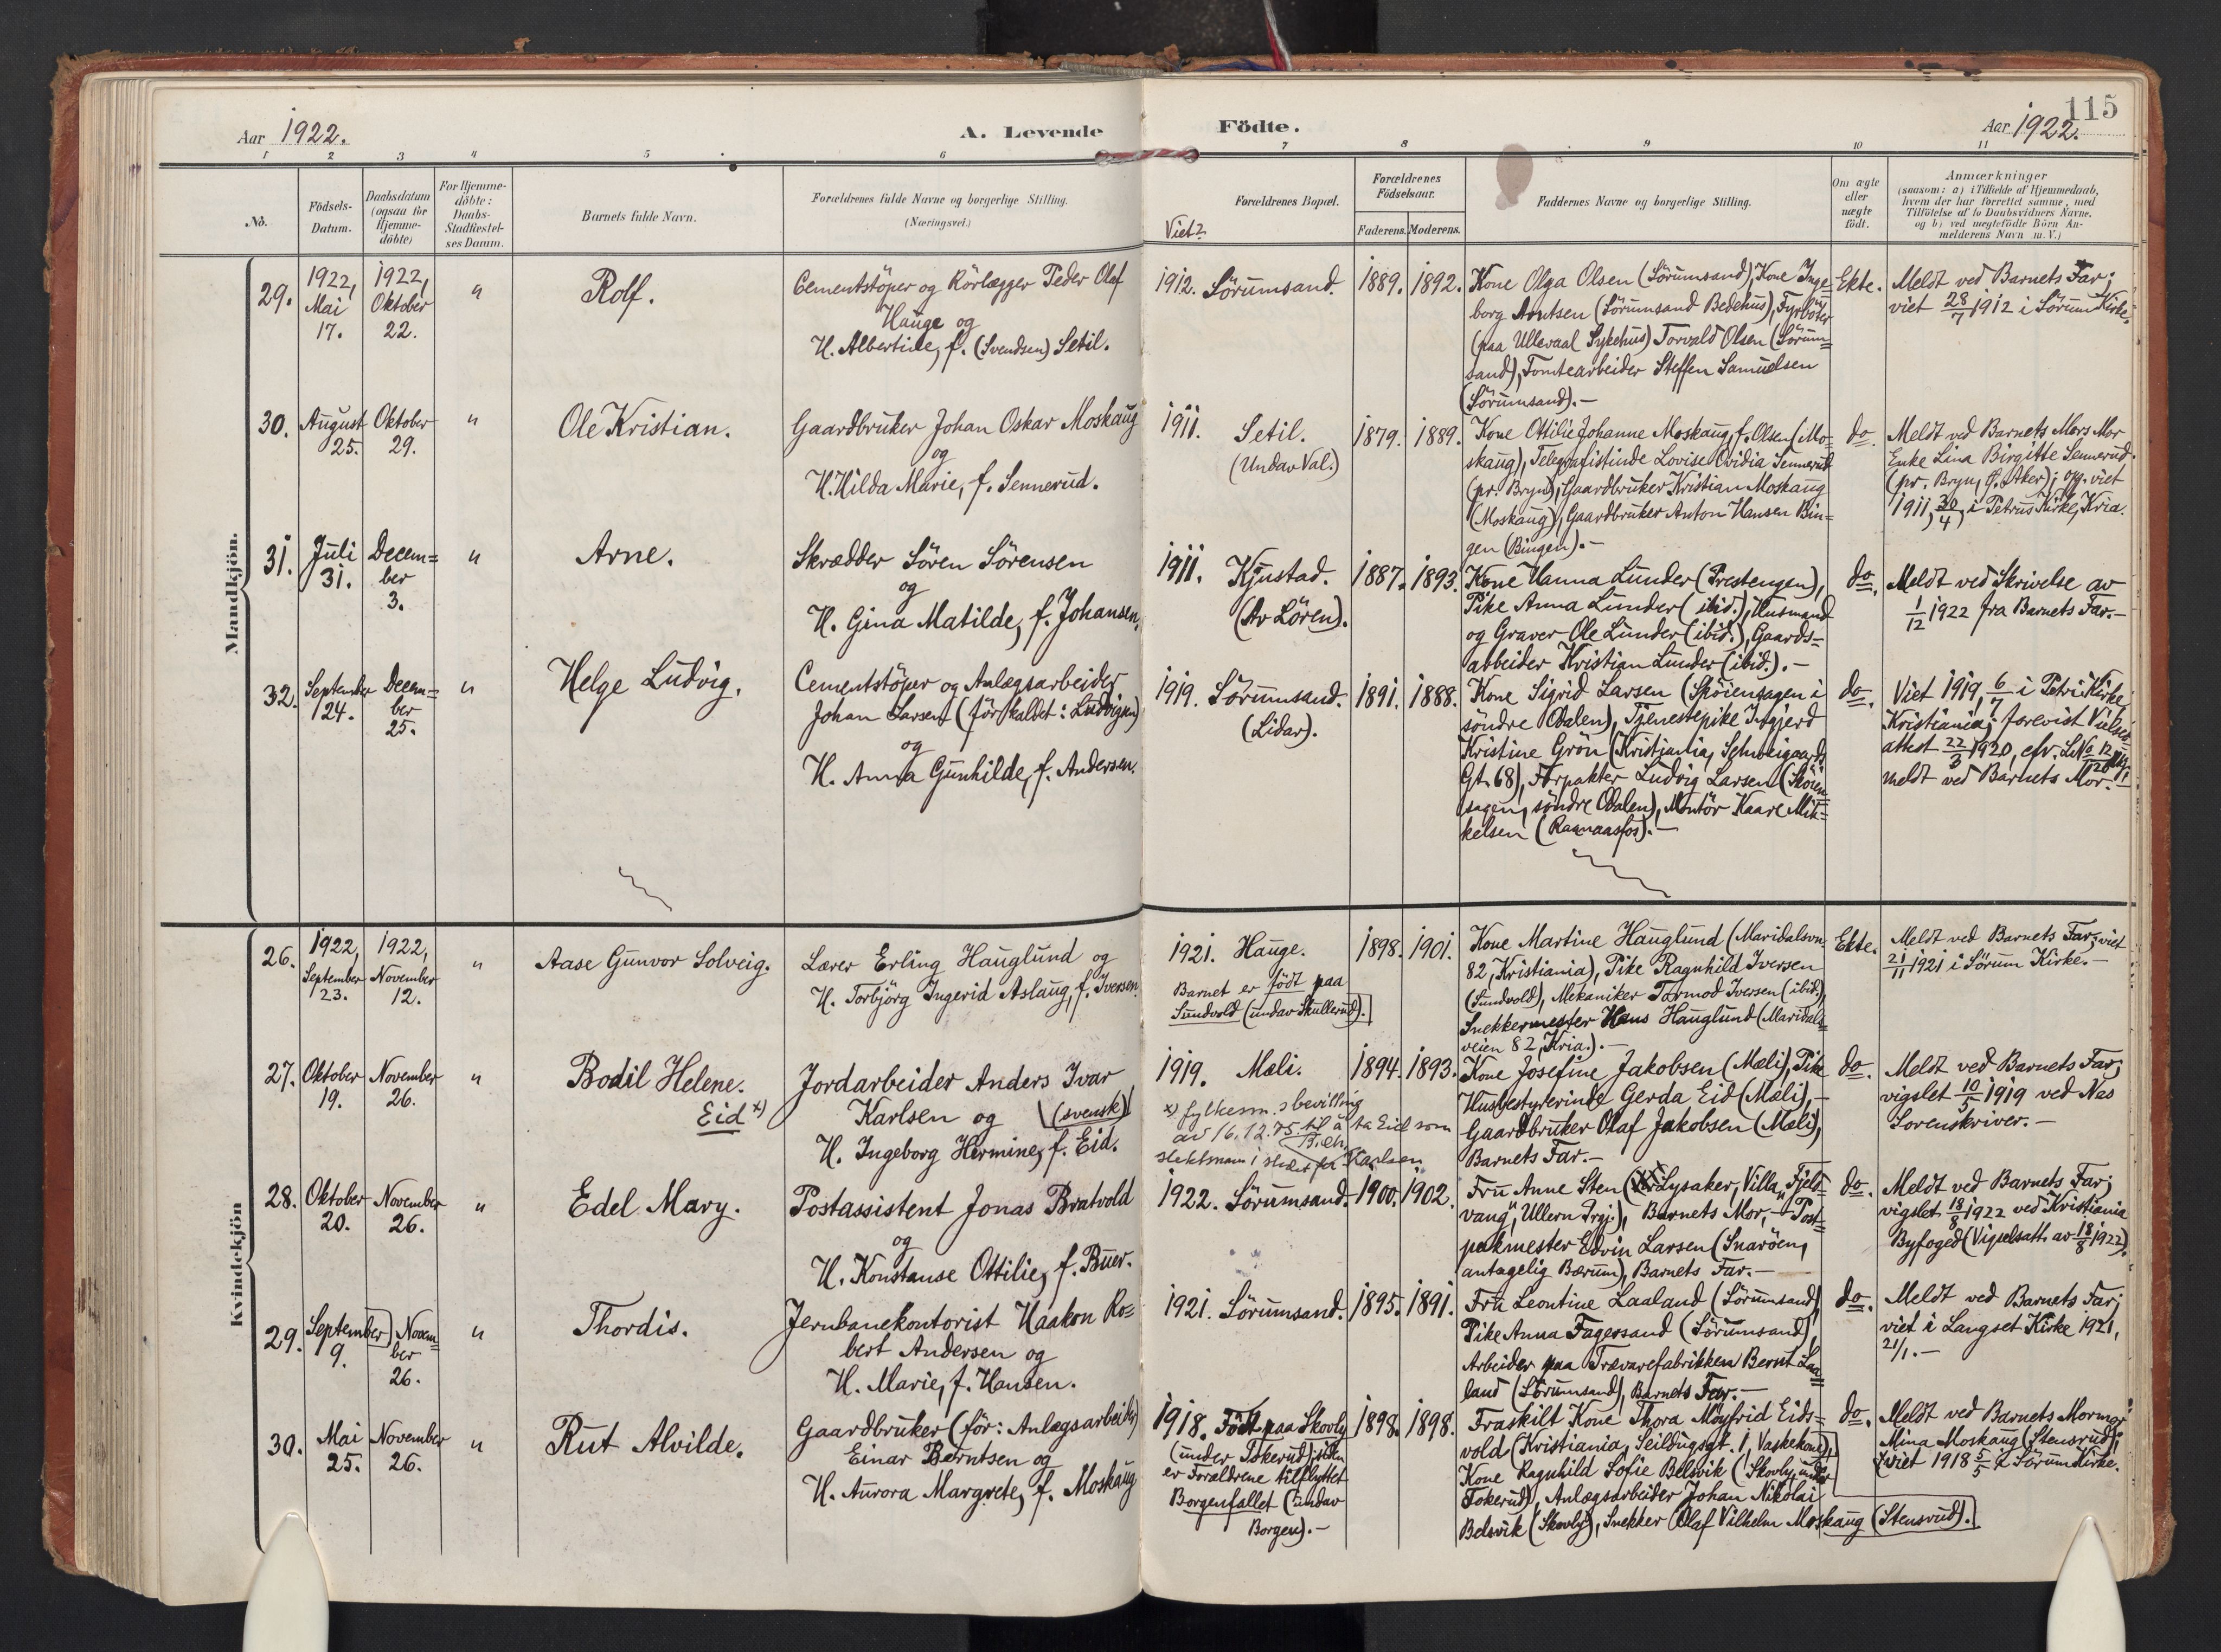 115
Aar 1922.
A. Levende
Födte.
Aar 1922.
1 2 3 4 5 6 7 8 9 10 11
No.
Födsels-
Datum.
Daabsdatum
(ogsaa for
Hjemme-
döbte)
For Hjemme-
döbte:
Daabs-
Stadfæstel-
ses Datum.
Barnets fulde Navn.
Forældrenes fulde Navne og borgerlige Stilling.
(Næringsvei.)
Viet?
Forældrenes Bopæl.
Forældrenes
Födselsaar.
Faderens. Moderens.
Faddernes Navne og borgerlige Stilling.
Om ægte
eller
uægte
födt.
Anmærkninger
(saasom: a) i Tilfælde af Hjemmedaab,
hvem der har forrettet samme, med
Tilföielse af to Daabsvidners Navne.
og b) ved uægtefödte Börn An-
melderens Navn m. V.)
Mandkjön.
29.
1922,
Mai
17.
1922,
Oktober
22.
"
Rolf.
Cementstöper og Rörlægger Peder Olaf
Hauge og
H. Albertine, f. (Svendsen) Setil.
1912. Sörumsand.
1889. 1892.
Kone Olga Olsen (Sörumsand), Kone Inge-
borg Arntsen (Sörumsand Bedehus), Fyrböter
(paa Ullevaal Sykehus) Torvald Olsen (Sörum=
sand), Tomtearbeider Steffen Samuelsen
(Sörumsand).-
Ekte.
Meldt ved Barnets Far;
viet 28/7 1912 i Sörum Kirke.
30.
August
25.
Oktober
29.
"
Ole Kristian.
Gaardbruker Johan Oskar Moskaug
og
H. Hilda Marie, f. Sennerud.
1911. Setil.
(Undav Val.)
1879. 1889.
Kone Ottilie Johanne Moskaug, f. Olsen (Mo-
skaug), Telegrafistinde Lovise Ovidia Sennerud
(pr. Bryn), Gaardbruker Kristian Moskaug
(Moskaug), Gaardbruker Anton Hansen Bin=
gen (Bingen).-
do.
Meldt ved Barnets Mors Mor
Enke Lina Birgitte Sennerud.
(pr. Bryn, Ö. Aker); opg. viet
1911, 30/4, i Petrus Kirke, Kria.
31.
Juli
31.
Decem=
ber
3.
"
Arne.
Skrædder Sören Sörensen
og
H. Gina Matilde, f. Johansen.
1911. Kjustad.
(Av Lören).
1887. 1893.
Kone Hanna Lunder (Prestengen),
Pike Anna Lunder (ibid.), Husmand
og Graver Ole Lunder (ibid.), Gaards-
arbeider Kristian Lunder (ibid.).-
do.
Meldt ved Skrivelse av
1/12 1922 fra Barnets Far.-
32.
September
24.
Decem=
ber
25.
"
Helge Ludvig.
Cementstöper og Anlægsarbeider
Johan Larsen (för kaldet: Ludvigsen)
og
H. Anna Gunhilde, f. Andersen.
1919. Sörumsand.
(Lidar).
1891. 1888.
Kone Sigrid Larsen (Sköiensagen i
söndre Odalen), Tjenestepike Ingjerd
Kristine Grön (Kristiania, Schweigaards
Gt. 68), Forpakter Ludvig Larsen (Sköien
sagen, söndre Odalen), Montör Kaare Mik=
kelsen (Raanaasfos).-
do.
Viet 1919, 6/7 i Petri Kirke,
Kristiania; forevist Vielses-
attest 22/3 1920, cfr. L No 12
meldt ved Barnets Mor.-
Kvindekjön
26.
1922,
September
23.
1922,
November
12.
"
Aase Gunvor Solveig.
Lærer Erling Hauglund og
H. Torbjörg Ingerid Aslaug, f. Iversen.
1921. Hauge.
Barnet er födt paa
Sundvold (undav Skullerud).
1898. 1901.
Kone Martine Hauglund (Maridalsvn.
82, Kristiania), Pike Ragnhild Iversen
(Sundvold), Mekaniker Tormod Iversen (ibid.),
Snekkermester Hans Hauglund (Maridals
veien 82, Kria.).-
Ekte.
Meldt ved Barnets Far; viet
21/11 1921 i Sörum Kirke.-
27.
Oktober
19.
November
26.
"
Bodil Helene.
Eid x)
Jordarbeider Anders Ivar
Karlsen og (svensk)
H. Ingeborg Hermine, f. Eid.
1919. Mæli.
x) fylkesm.s bevilling
av 16.12.75 til å ta Eid som
slektsnavn i stedet for Karlsen
1894. 1893.
Kone Josefine Jakobsen (Mæli), Pike
Husbestyrerinde Gerda Eid (Mæli),-
Gaardbruker Olaf Jakobsen (Mæli),
Barnets Far.-
do.
Meldt ved Barnets Far;
vigslet 10/5 1919 ved Nes
Sorenskriver.-
28.
Oktober
20.
November
26.
"
Edel Mary.
Postassistent Jonas Bratvold
og
H. Konstanse Ottilie, f. Buer.
1922. Sörumsand.
1900. 1902.
Fru Anne Sten (Lysaker, Villa "Fjeld-
vang", Ullern Prgj.), Barnets Mor,- Post=
pakmester Edvin Larsen (Snaröen,
antagelig Bærum), Barnets Far.-
do.
Meldt ved Barnets Far;
vigslet 18/8 1922 ved Kristiania
Byfoged (Vigselsatt. av 18/8 1922).
29.
September
9.
Novem=
ber
26.
"
Thordis.
Jernbanekontorist Haakon Ro=
bert Andersen og
H. Marie, f. Hansen.
1921. Sörumsand.
1895. 1891.
Fru Leontine Laaland (Sörumsand),
Pike Anna Fagersand (Sörumsand),
Arbeider paa Trævarefabrikken Bernt Laa
land (Sörumsand), Barnets Far.-
do.
Meldt ved Barnets Far;
viet i Langset Kirke 1921,
21/1.-
30.
Mai
25.
November
26.
"
Rut Alvilde.
Gaardbruker (för: Anlægsarbeider)
Einar Berntsen og
H. Aurora Margrete, f. Moskaug
1918. Födt paa Skovly
(under Tokerud); siden
er Forældrene tilflyttet
Borgenfallet (undav
Borgen).-
1898. 1898.
Fraskilt Kone Thora Möyfrid Eids=
vold (Kristiania, Seildugsgt. 1, Vaskekone),
Kone Ragnhild Sofie Belsvik (Skovly under
Tokerud), Anlægsarbeider Johan Nikolai
Belsvik (Skovly), Snekker Olaf Vilhelm Moskaug (Stensrud).
do.
Meldt ved Barnets Mormor
Mina Moskaug (Stensrud);
viet 1918 5/5 i Sörum Kirke.